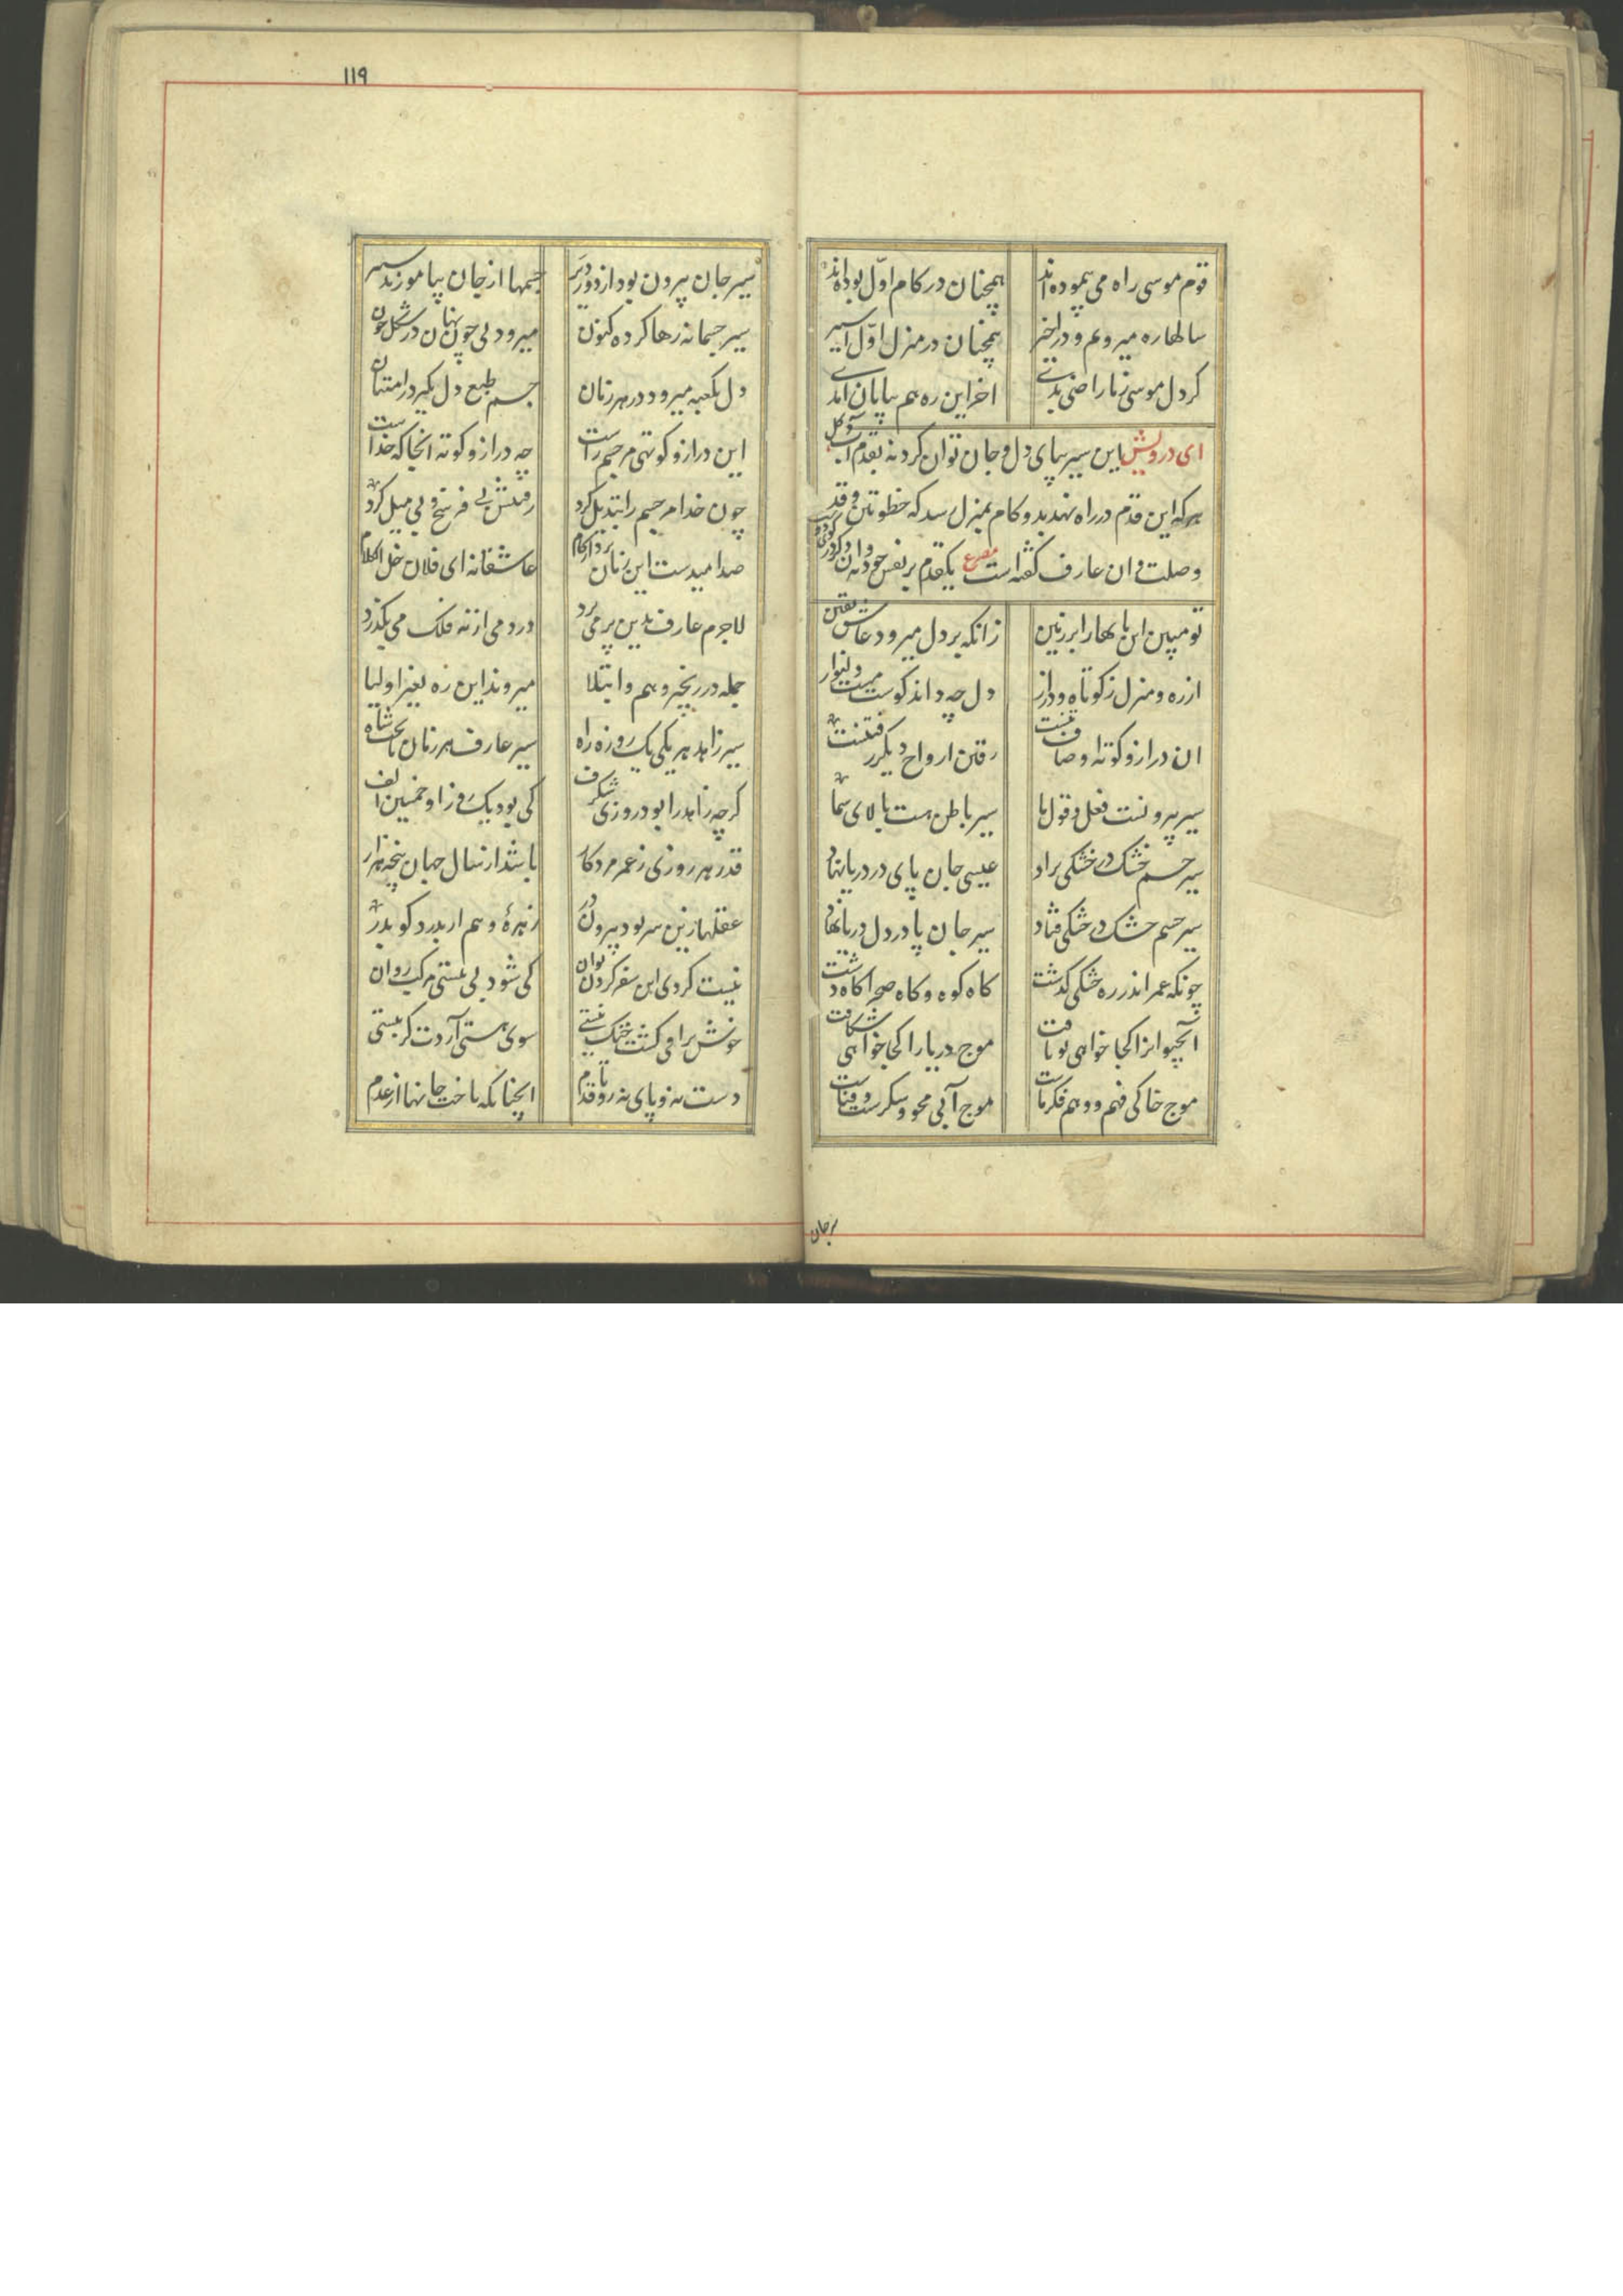 قوم موسی راه می پیموده‌اند همچنان در کام اوّل بوده‌اند
سالها ره میرویم و در اخیر همچنان در منزل اوّل اسیر
کر دل موسی زما راضی بدی اخر این ره هم بپایان آمدی
ای درویش این سیر بپای دل و جان توان کرد نه بقدم آب و کل
هر که این قدم در راه نهد بدو کام بمنزل رسد که خطوتین و قد
وصلت و ان عارف کفته است مصرع یکقدم بر نفس خود نه وان دکر در کوی دوست
تو مبین این پایها را بر زمین زانکه بر دل میرود عاشق یقین
از ره و منزل ز کوتاه و دراز دل چه داند کوست مست و دلنواز
ان دراز و کوته اوصاف تنست رفتن ارواح دیکر رفتنست
سیر بیرونست فعل و قول ما سیر باطن هست بالای سما
سیر جسم خشک در خشکی براد عیسی جان پای در دریا نهاد
سیر جسم خشک در خشکی فتاد سیر جان پا در دل دریا نهاد
چونکه عمر اندر ره خشکی کذشت کاه کوه و کاه صحرا کاه دشت
آنچیوانرا کجا خواهی تو یافت موج دریا را کجا خواهی شکافت
موج خاکی فهم و وهم فکر ماست موج آبی محو و سکرست و فناست
سیر جان
۱۱۹
سیر جان بیرون بود از دور و دیر جسمها از جان بیاموزند سیر
سیر جسمانه رها کرده کنون میرود بی چون نهان در شکل چون
دل بکعبه میرود در هر زمان جسم طبع دل بکیرد ز امتنان
این دراز و کوتهی مر جسم راست چه دراز و کوته انجا که خداست
چون خدا مر جسم را تبدیل کرد رفتنش بی فرسخ و بی میل کرد
صد امیدست این زمان بردار کام عاشقانه ای فلان خل الکلام
لاجرم عارف بدین پر می پرد در دمی از نه فلک می بکذرد
جمله در زنجیر وهم و ابتلا میروند این ره بغیر اولیا
سیر زاهد هر یکی یک روزه راه سیر عارف هر زمان تا تخت شاه
کرچه زاهد را بود روزی شکرف کی بود یک روز او خمسین الف
قدر هر روزی ز عمر مرد کار باشد از سال جهان پنجه هزار
عقلها زین سر بود بیرون در زهرهٔ وهم ار بدرد کو بدر
نیست کردی این سفر کردن توان کی شود بی نیستی مرکب روان
خوش براقی کشت خنک نیستی سوی هستی آردت کر نیستی
دست نه و پای نه رو تا قدم انچنانکه تاخت جانها از عدم